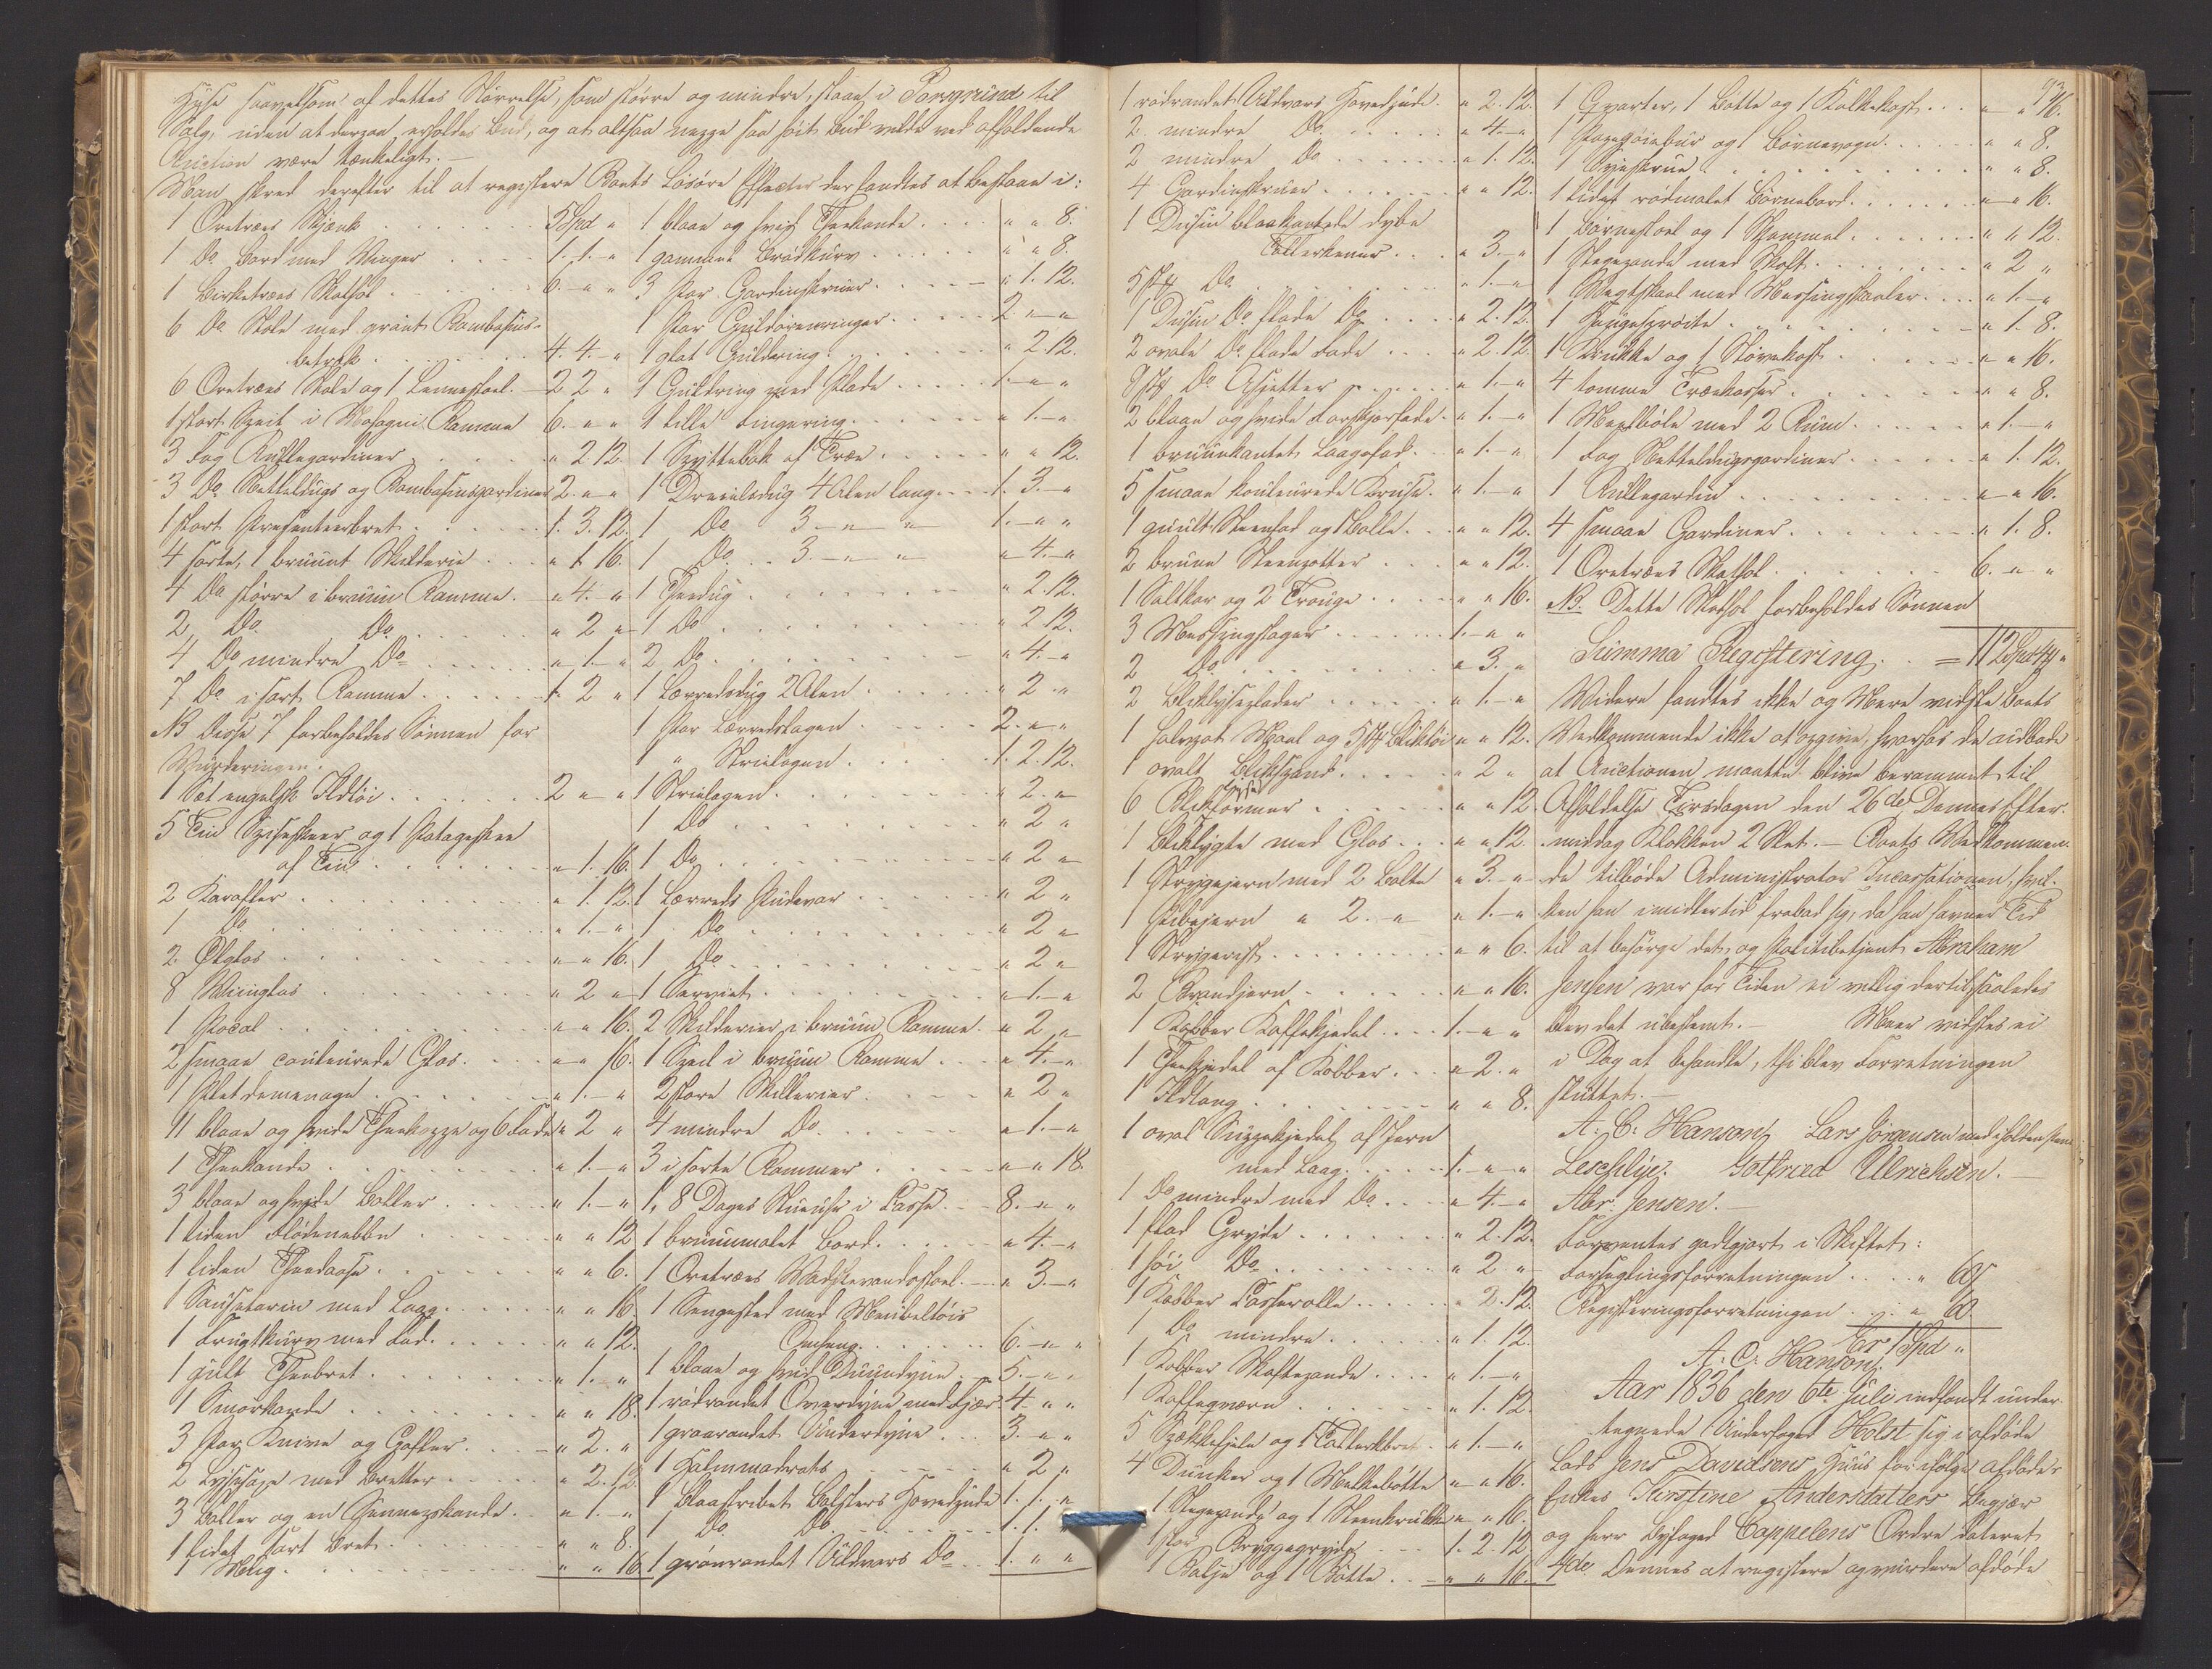 Huse saavelsom af dettes Størrelse, som større og mindre, staae i Porsgrund til
Salg, uden at derpaa erholdes Bud, og at altsaa neppe saa høit Bud vilde ved afholdende
Auction være tænkeligt. —
Man skred derefter til at registere Boets Løsøre Effecter der fandtes at bestaae i:
1 Oretræes Skjænk . . . 5 Spd "
1 Do Bord med Vinger . . . 1. 1. "
1 Birketræes Chatol . . . 6. " "
6 Do Stole med grønt Bombasins-
betræk . . . 4. 4. "
6 Oretræes Stole og 1 Lænestoel. 2 2 "
1 stort Speil i Mahogni Ramme 6. " "
3 Fag Rullegardiner . . . " 2. 12.
3 Do Netteldugs og Bombasinsgardiner 2. " "
1 stort Presenteerbret . . . 1. 3. 12.
4 sorte, 1 bruunt Skilderie . . . " 1 16.
4 Do større i bruun Ramme. " 4. "
2 Do Do . . . " 2 "
4 Do mindre Do . . . " 1. "
7 Do i sort Ramme . . . 1. 2 "
NB Disse 7 forbeholdes Sønnen for
Vurderingen.
1 Sæt engelsk Ildtøi . . . 2 " "
5 Tin Spiseskeer og 1 Potageskee
af Tin . . . " 1. 16.
2 Karafler . . . " 1. 12.
1 Do . . . " 1. "
2 Ølglas . . . " " 16.
8 Viinglas . . . " 2 "
1 Pocal . . . " " 16.
2 smaae couleurede Glas. . . " " 16.
1 Platdemenage . . . " 1. "
11 blaae og hvide Theekopper og 6 Fade " 2 "
1 Theekande . . . " 1. "
3 blaae og hvide Boller . . . " 1. "
1 liden Flødenebbe . . . " " 12
1 liden Theedaase . . . " " 6.
1 Sauseterin med Laag . . . " " 16
1 Frugtkurv med Fad. . . " " 12.
1 guult Theebret . . . " 1. "
1 Smørkande . . . " " 18.
3 Par Knive og Gafler. . . " 2. "
2 Lysesaxe med Bretter . . . " 2. 12.
3 Boller og en Sennepskande. . . " 1. "
1 lidet sort Bret . . . " " 8.
1 Mug . . . " " 16
1 blaae og hvid Theekande . . . " " 8.
1 gammel Brødkurv . . . " " 8.
3 Par Gardinskruer . . . " 1. 12.
1 Par Guldørenringer . . . 2. " "
1 glat Guldring . . . " 2. 12.
1 Guldring med Plade . . . 1. " "
1 lille Fingerring . . . " 1. "
1 Spyttebak af Træe . . . " " 12.
1 Dreielsdug 4 Alen lang . . . 1. 3. "
1 Do 3 — " " 1. " "
1 Do . . 3. — " " " 4. "
1 Theedug . . . " 2. 12.
1 Do . . . " 2 12.
2 Do . . . " 4. "
1 Lærredsdug 2 Alen . . . " 2. "
1 Par Lærredslagen . . . 2. " "
1 " Strielagen . . . 1. 2. 12.
1 Strielagen . . . " 2. "
1 Do . . . " 2 "
1 Do . . . " 2 "
1 Lærreds Pudevar . . . " 2 "
1 Do . . . " 2 "
1 Do . . . " 2 "
1 Serviet . . . " 1. "
2 Skilderier i bruun Ramme. " 2 "
1 Speil i bruun Ramme . . . " 4. "
2 store Skillerier . . . " 2 "
4 mindre Do . . . " 1. "
3 i sorte Rammer . . . " " 18.
1, 8 Dages Stueuhr i Casse. — 8. " "
1 bruunmalet Bord. . . " 4. "
1 Oretræes Vadskevandsstoel. — " 3. "
1 Sengested med Meubeltøis
Omheng . . . 6. " "
1 blaae og hvid Duundyne . . 5. " "
1 rødrandet Overdyne med Fjær 4. " "
1 graarandet Underdyne . . 3. " "
1 Halmmadrats . . . " 2 "
1 blaastribet Bolsters Hovedpude 1. 1. "
1 Do Do . . . 1. 1. "
1 grønrandet Uldvars Do . . 1. " "
1 rødrandet Uldvars Hovedpude. " 2. 12.
2 mindre Do . . . " 4. "
2 mindre Do . . . " 1. 12.
4 Gardinskruer . . . " " 12.
1 Dusin blaakantede dybe
Tallerkener . . . " 3. "
5 Stk Do . . . " 1. "
1 Dusin Do flade Do . . . " 2. 12.
2 ovale Do flade Fade . . . " 2. 12.
9 Stk Do Assietter . . . " 1. "
2 blaae og hvide Forskjærfade. " 1. "
1 bruunkantet Laagefad. . " 1. "
5 smaae kouleurede Kruse. " 1. "
1 guult Steenfad og 1 Bolle. . " " 12.
2 brune Steenpotter . . . " " 12.
1 Saltkar og 2 Trouge . . . " " 16.
3 Messingstager . . . 1. " "
2 Do . . . " 3. "
2 Bliklyseplader . . . " 1. "
1 halvpot Maal og 5 Stk Bliktøi " " 12.
1 ovalt Blikspand . . . " 2 "
6 Bliklyseformer . . . " " 12
1 Bliklygte med Glas . . . " " 12.
1 Strygejern med 2 Bolte " 3. "
1 Pibejern " 2. " " 1. "
1 Strygerist . . . " " 6.
2 Brandjern . . . " " 16.
1 Kobber Kaffekjedel . . . 1. " "
1 Theekjedel af Kobber . . . " 2. "
1 Ildtang . . . " " 8.
1 oval Suppekjedel af Jern
med Laag . . . 1. " "
1 Do mindre med Do . . . " 4. "
1 flad Gryde . . . " 2. 12.
1 høi Do . . . " 2 "
1 Kobber Casserolle . . . " 2. 12.
1 Do mindre . . . " 1. 12.
1 Kobber Skaftepande . . . " 1. "
1 Kaffeqværn . . . " 1. 12.
5 Spækkefjele og 1 Tallerkbret . " 1. "
4 Dunker og 1 Melkebøtte " " 16.
1 Stegepande og 1 Steenkrukke " " 16.
1 stor Bryggegryde . . . 1. 2 12.
1 Balje og 1 Bøtte . . . " " 16.
93
1 Qvarter, 1 Bøtte og 1 Kalkekost . . . " " 16.
1 Papegøiebur og 1 Børnevogn . . . " " 8.
1 Dyestrue . . . " " 8.
1 lidet rødmalet Børnebord . . . " " 16.
1 Børnestoel og 1 Skammel . . . " " 12.
1 Stegepande med Skaft . . . " 2 "
1 Vægtskaal med Messingskaaler. . . " 1. "
1 Haugesprøite . . . " 1. 8.
1 Krukke og 1 Støvekost . . . " " 16.
4 tomme Trækasser . . . " " 8.
1 Meelbøle med 2 Rum . . . " 1. "
1 Fag Netteldugsgardiner . . . " 1. 12.
1 Rullegardin . . . " " 16.
4 smaae Gardiner . . . " 1. 8.
1 Oretræes Chatol . . . 6. " "
NB. Dette Chatol forbeholdes Sønnen
Summa Registering . . = 112 Spd "
Videre fandtes ikke og Mere vidste Boets
Vedkommende ikke at opgive, hvorfor de udbade
at Auctionen maatte blive berammet til
Afholdelse Tirsdagen den 26de Dennes Efter-
middag Klokken 2 Slet. — Boets Vedkommen-
de tilbøde Administrator Incassationen, hvil-
ken han imidlertid frabad sig, da han savner Tid
til at besørge det, og Politibetjent Abraham
Jensen var for Tiden ei villig dertil, saaledes
blev det ubestemt. — Meer vidstes ei
i Dag at behandle, thi blev Forretningen
sluttet. —
A: C: Hanson, Lars Jørgensen med iholden Pen
Leschlÿe. Gotfried Ullrichsen. —
Abr: Jensen. —
Forventes godtgjort i Skiftet:
Forseglingsforretningen . . . " 60
Registeringsforretningen . . . " 60.
er 1 Spd "
A: C: Hanson.
Aar 1836 den 6te Juli indfandt under-
tegnede Underfoged Holst sig i afdøde
Lods Jens Davidsens Huus for ifølge afdødes
Enkes Kirstine Andersdatters Begjær
og Herr Byfoged Cappelens Ordre dateret
4de Dennes at registere og vurdere afdøde